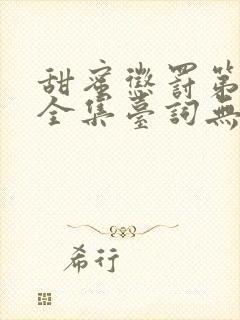 甜蜜懲罰第
全集臺詞無
希行